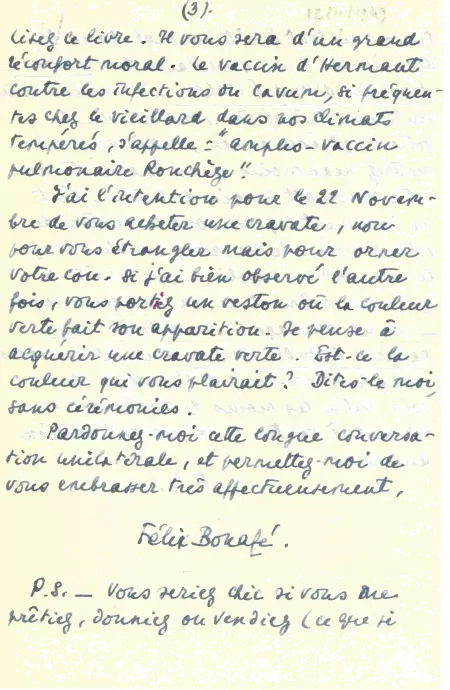 (3).
lisez ce livre. Il vous sera d'un grand
réconfort moral. Le vaccin d'Hermant
contre les infections du Cavum, si fréquen-
tes chez le vieillard dans nos climats
tempérés, s'appelle : "ampho-vaccin
pulmonaire Ronchèze"
J'ai l'intention pour le 22 Novem-
bre de vous acheter une cravate, non
pour vous étrangler mais pour orner
votre cou. Si j'ai bien observé l'autre
fois, vous portiez un veston où la couleur
verte fait son apparition. Je pense à
acquérir une cravate verte. Est-ce la
couleur qui vous plairait? Dites-le moi
sans cérémonies.
Pardonnez-moi cette longue conversa-
tion unilatérale, et permettez-moi de
vous embrasser très affectueusement,
Félix Bonafé.
P.S. — Vous seriez chic si vous me
prêtiez, donniez ou vendiez (ce que je